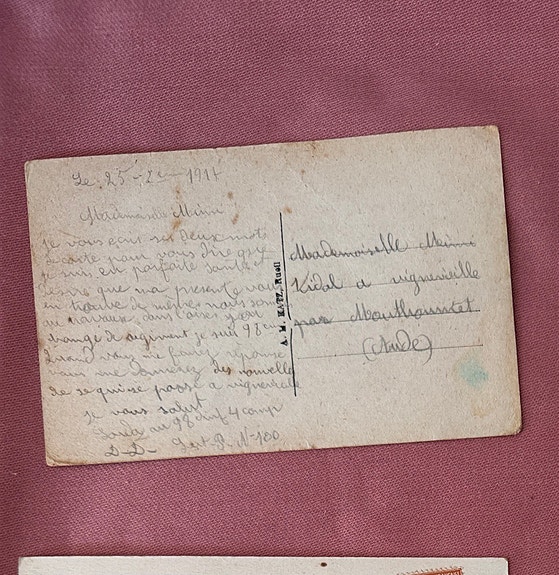 Le 25-2em 1917
Mademoiselle Minni
je vous ecrit ses deux mots
carte pour vous dire que
je suis en parfaite santé
que ma presente vous
trouve de même nous som
travaux dans
change de regiment je suis 98em
Quand vous me fairez reponse
vous me donnerez des nouvelle
de se qui se passe a vigneveille
je vous salut
au 98 inf 4 comp
D-D- Sect. P. N-100
A. M. KATZ, Rueil
Mademoiselle Minni
Vidal a vigneveille
par Mouthoumtet
(Aude)